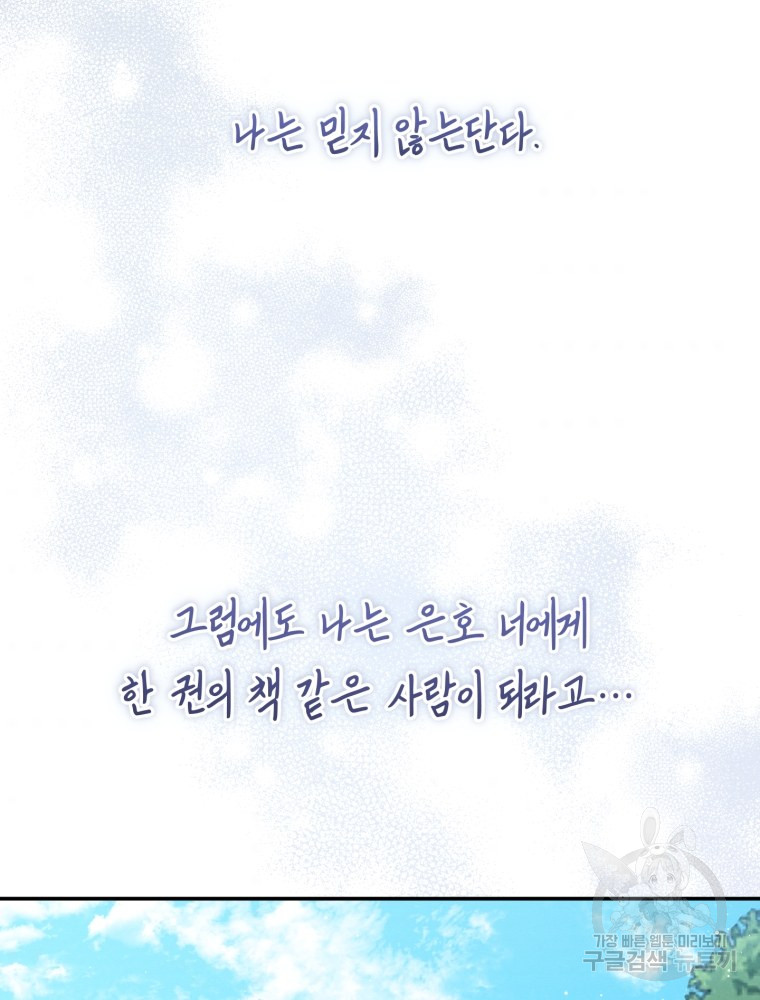 나는 믿지 않는단다.
그럼에도 나는 은호 너에게
한 권의 책 같은 사람이 되라고…
가장 빠른 웹툰 미리보기
구글검색 뉴토끼